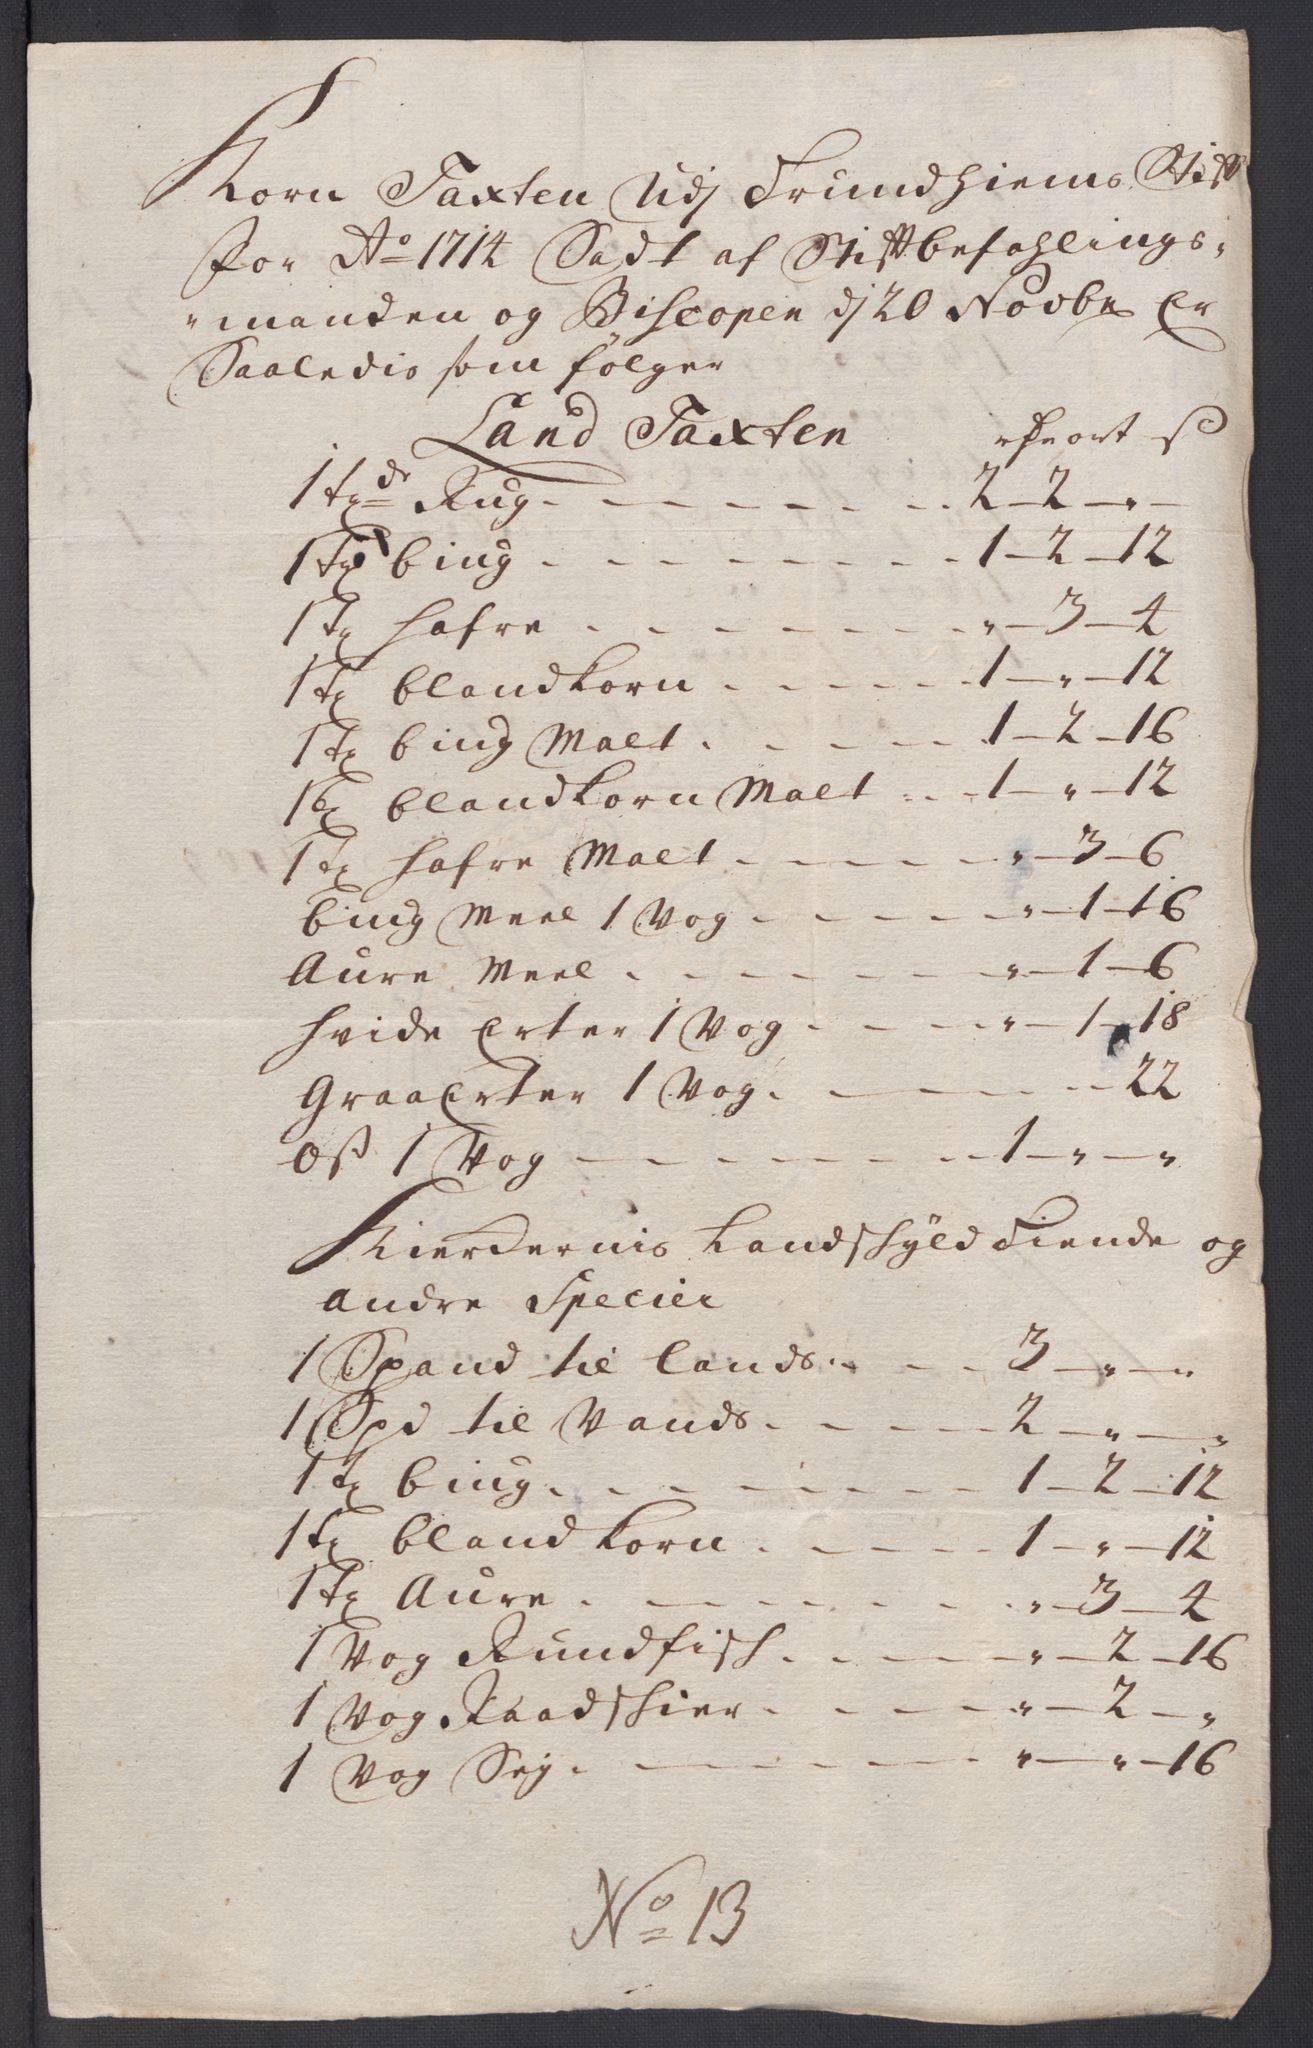 Korn Taxten Udj Trundhiems Stift
for Ao 1714 Sadt af Stiftbefahlings-
manden og Biscopen dj 20 Novbr Er
Saaledis som følger
Land Taxten rdr ort s
1 tde Rug 2 - 2 - "
1 tde biug 1 - 2 - 12
1 tde hafre " - 3 - 4
1 tde blandkorn 1 - " - 12
1 tde biug Malt 1 - 2 - 16
1 tde blandkorn Malt 1 - " - 12
1 tde hafre Malt " - 3 - 6
biug Meel 1 Vog " - 1 - 16
Aure Meel " - 1 - 6
hvide Erter 1 Vog " - 1 - 18
Graa Erter 1 Vog 22
Ost 1 Vog 1 - " - "
Kierkernis Landskyld Tiende og
andre Specier
1 Spand til Lands 3 - " - "
1 Spd til Vands 2 - " - "
1 tde biug 1 - 2 - 12
1 tde bland korn 1 - " - 12
1 tde Aure " - 3 - 4
1 Vog Rundfisch " - 2 - 16
1 Vog Raadskier " - 2 - "
1 Vog Sey " - " - 16
No 13